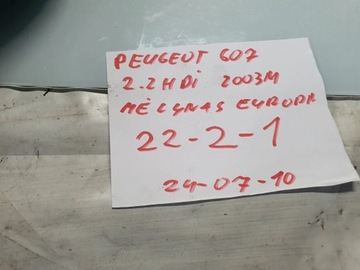 PEUGEOT 607
2.2HDi 2003M
MĖLYNAS EUROPA
22-2-1
24-07-10